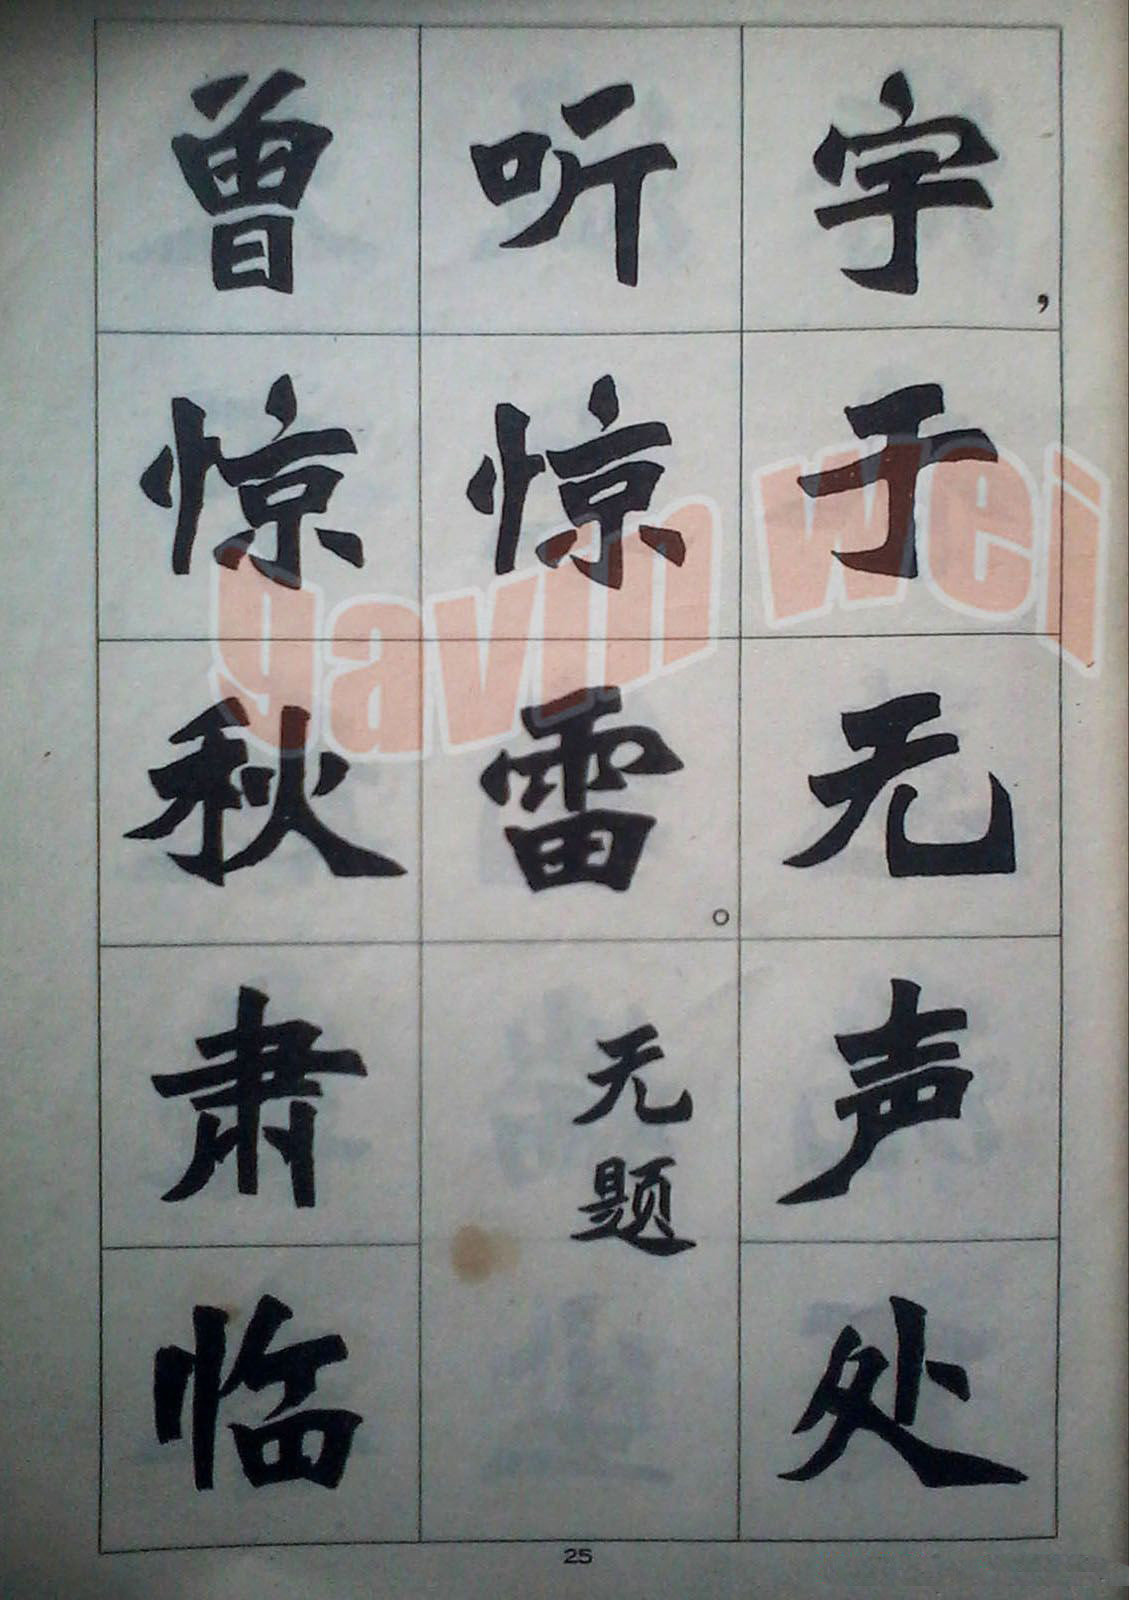 宇，于无声处
听惊雷。
无题
曾惊秋肃临
gavin wei
25